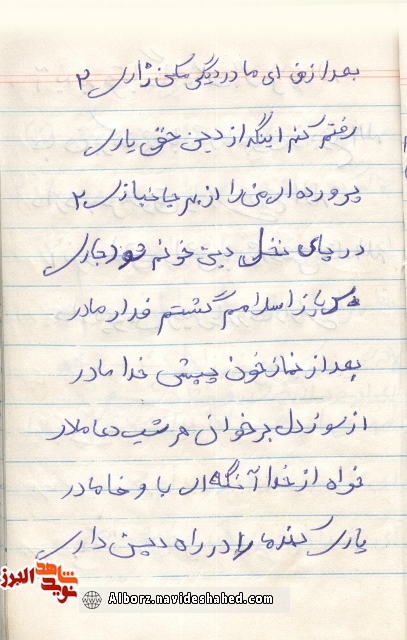 بعد از من ای مادر دیگر مکن زاری ۲
رفتم کنم اینک از دین حق یاری
پرورده ای من را از بهر جانبازی ۲
در پای نخل دین خونم شود جاری
سرباز اسلامم گشتم فدا مادر
بعد از نماز خون پیش خدا مادر
از سوز دل برخوان هر شب دعا مادر
خواه از خدا آنگه ای با وفا مادر
یاری کند ما را در راه دین داری
شاهد
نوید
البرز
Alborz.navideshahed.com